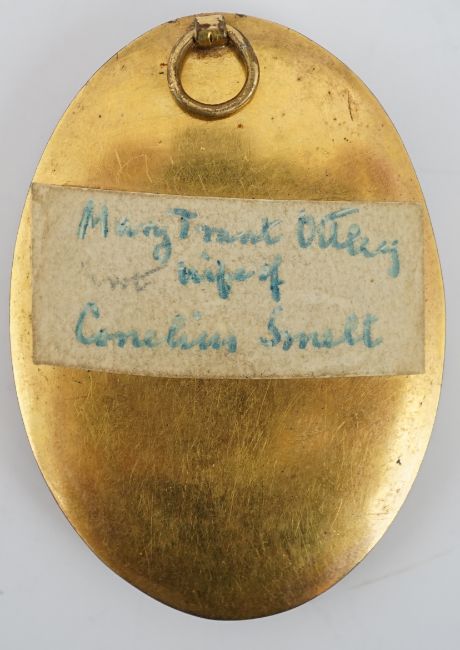 Mary Trant Ottley
wife of
Cornelius Smelt